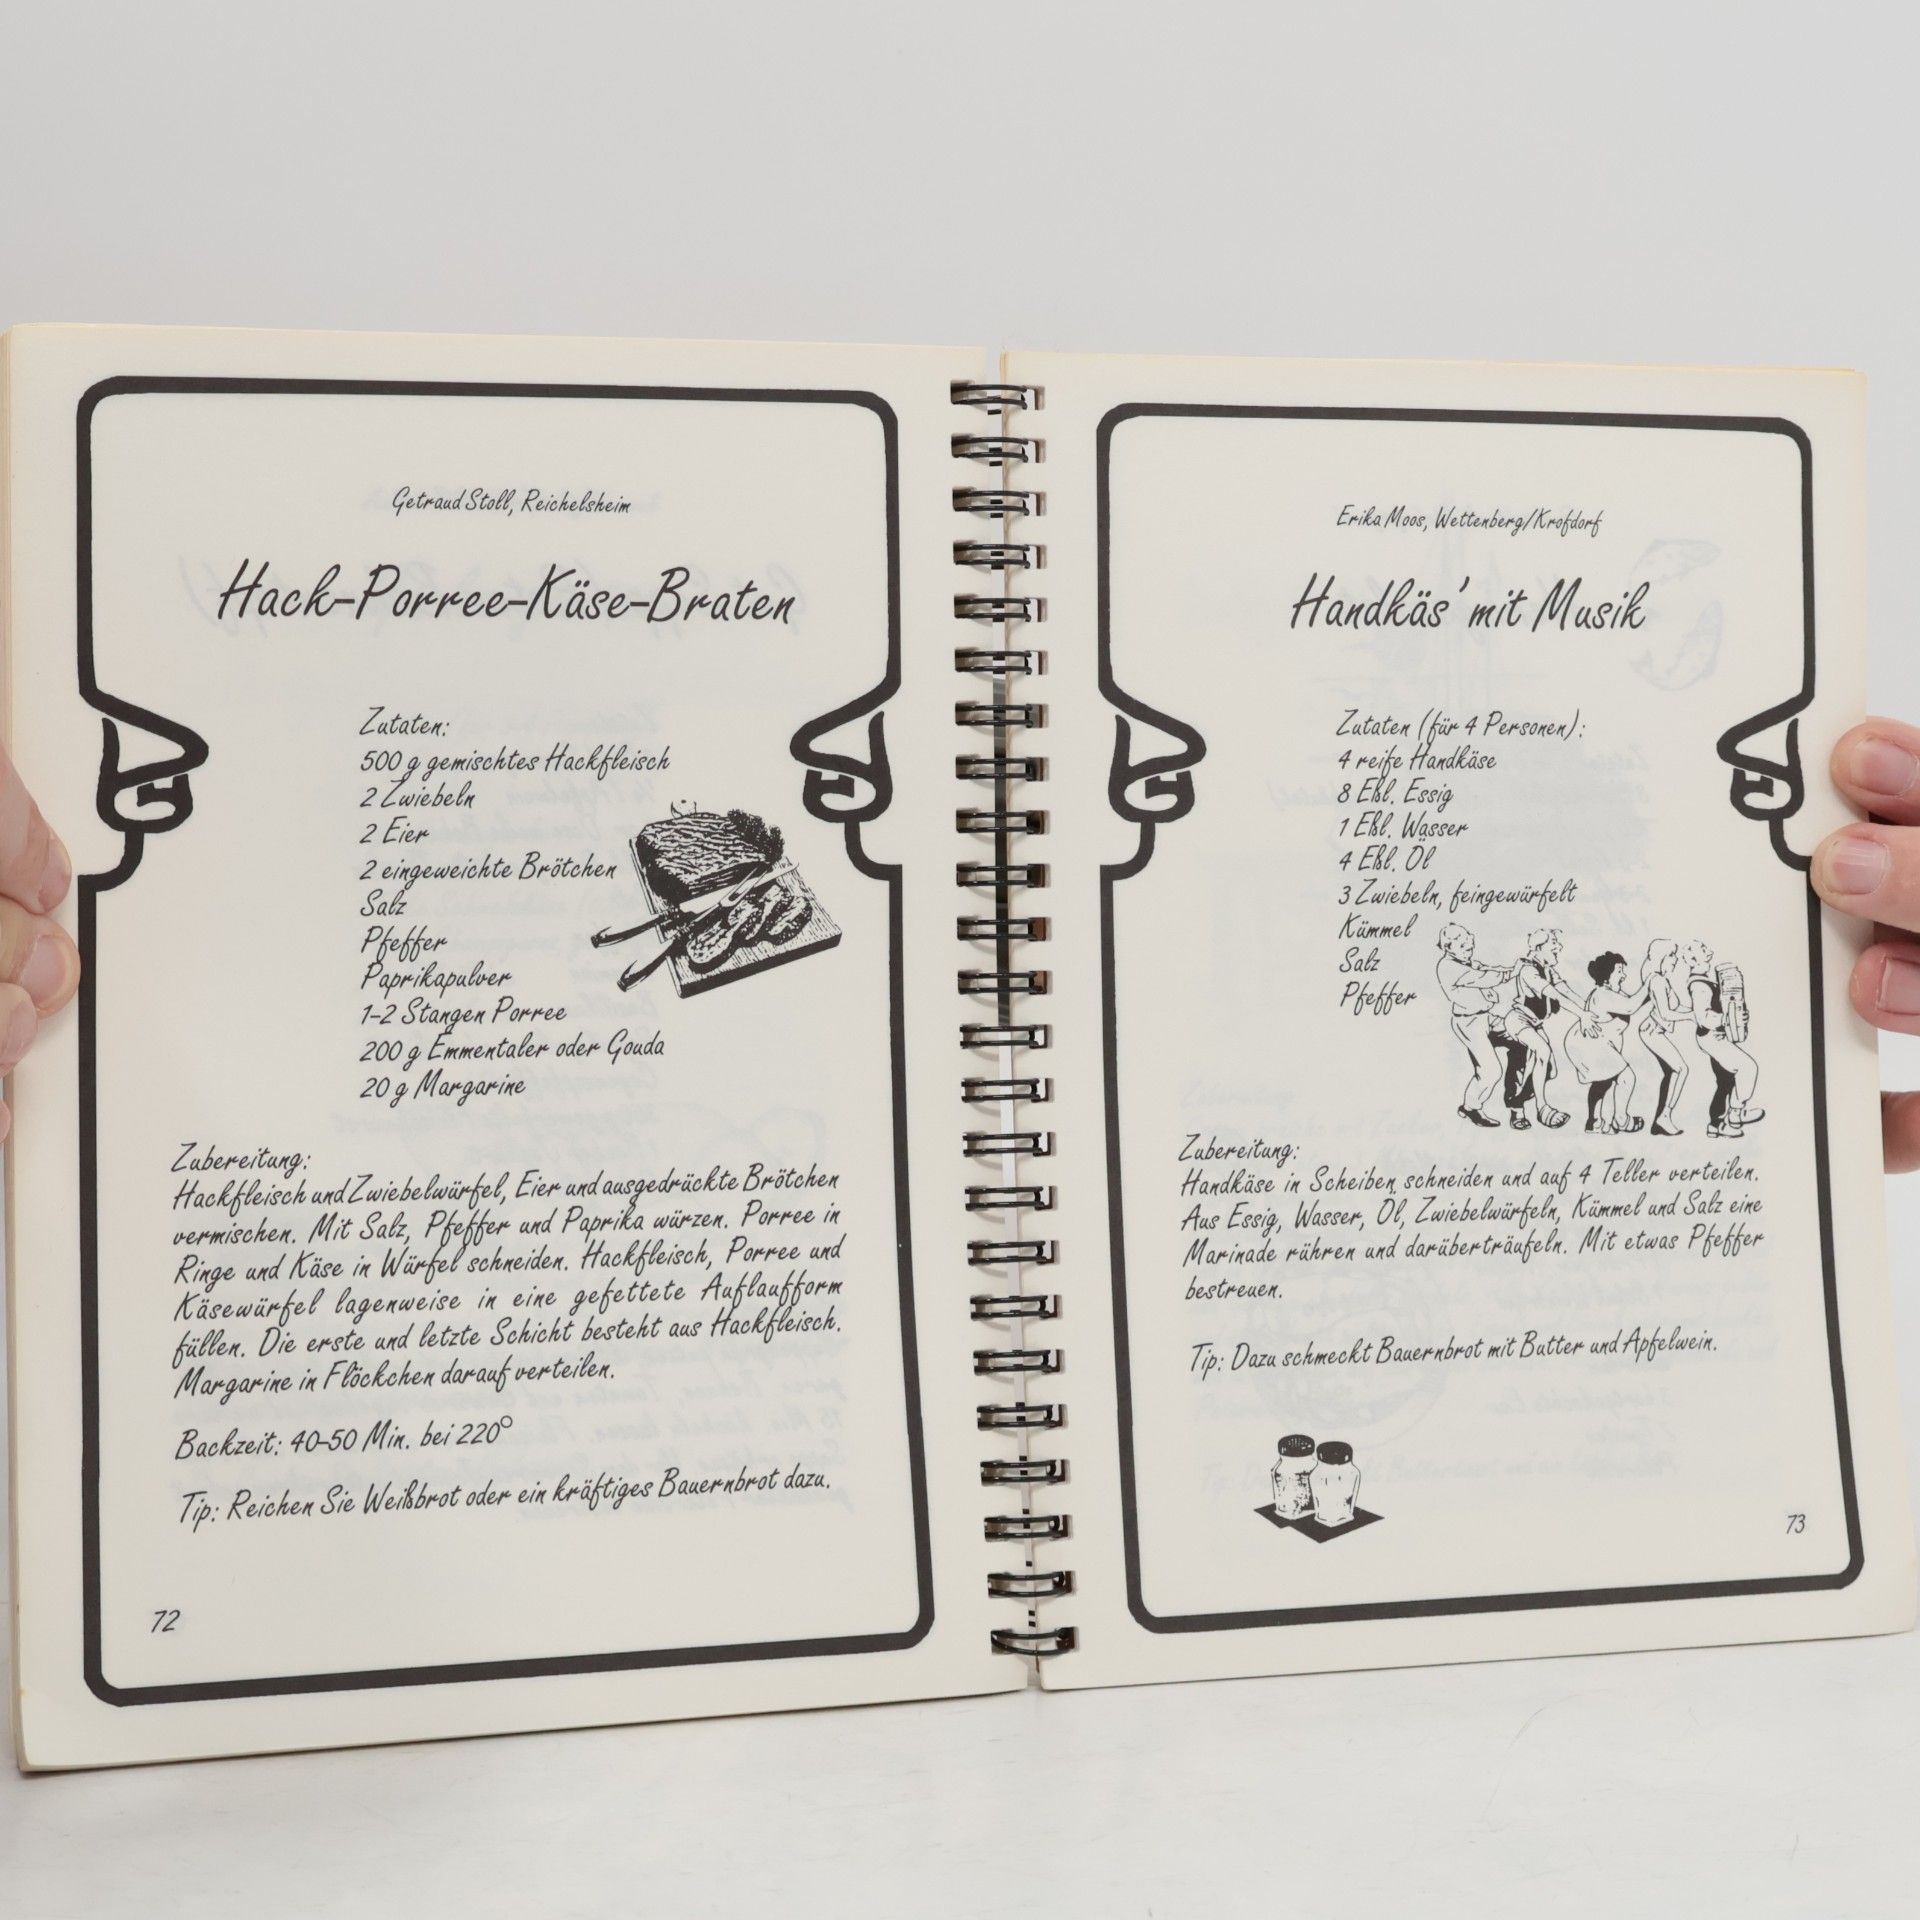 Getraud Stoll, Reichelsheim
Hack-Porree-Käse-Braten
Zutaten:
500 g gemischtes Hackfleisch
2 Zwiebeln
2 Eier
2 eingeweichte Brötchen
Salz
Pfeffer
Paprikapulver
1-2 Stangen Porree
200 g Emmentaler oder Gouda
20 g Margarine
Zubereitung:
Hackfleisch und Zwiebelwürfel, Eier und ausgedrückte Brötchen
vermischen. Mit Salz, Pfeffer und Paprika würzen. Porree in
Ringe und Käse in Würfel schneiden. Hackfleisch, Porree und
Käsewürfel lagenweise in eine gefettete Auflaufform
füllen. Die erste und letzte Schicht besteht aus Hackfleisch.
Margarine in Flöckchen darauf verteilen.
Backzeit: 40-50 Min. bei 220°
Tip: Reichen Sie Weißbrot oder ein kräftiges Bauernbrot dazu.
72
Erika Moos, Wettenberg/Krofdorf
Handkäs' mit Musik
Zutaten (für 4 Personen):
4 reife Handkäse
8 Eßl. Essig
1 Eßl. Wasser
4 Eßl. Öl
3 Zwiebeln, feingewürfelt
Kümmel
Salz
Pfeffer
Zubereitung:
Handkäse in Scheiben schneiden und auf 4 Teller verteilen.
Aus Essig, Wasser, Öl, Zwiebelwürfeln, Kümmel und Salz eine
Marinade rühren und darüberträufeln. Mit etwas Pfeffer
bestreuen.
Tip: Dazu schmeckt Bauernbrot mit Butter und Apfelwein.
73